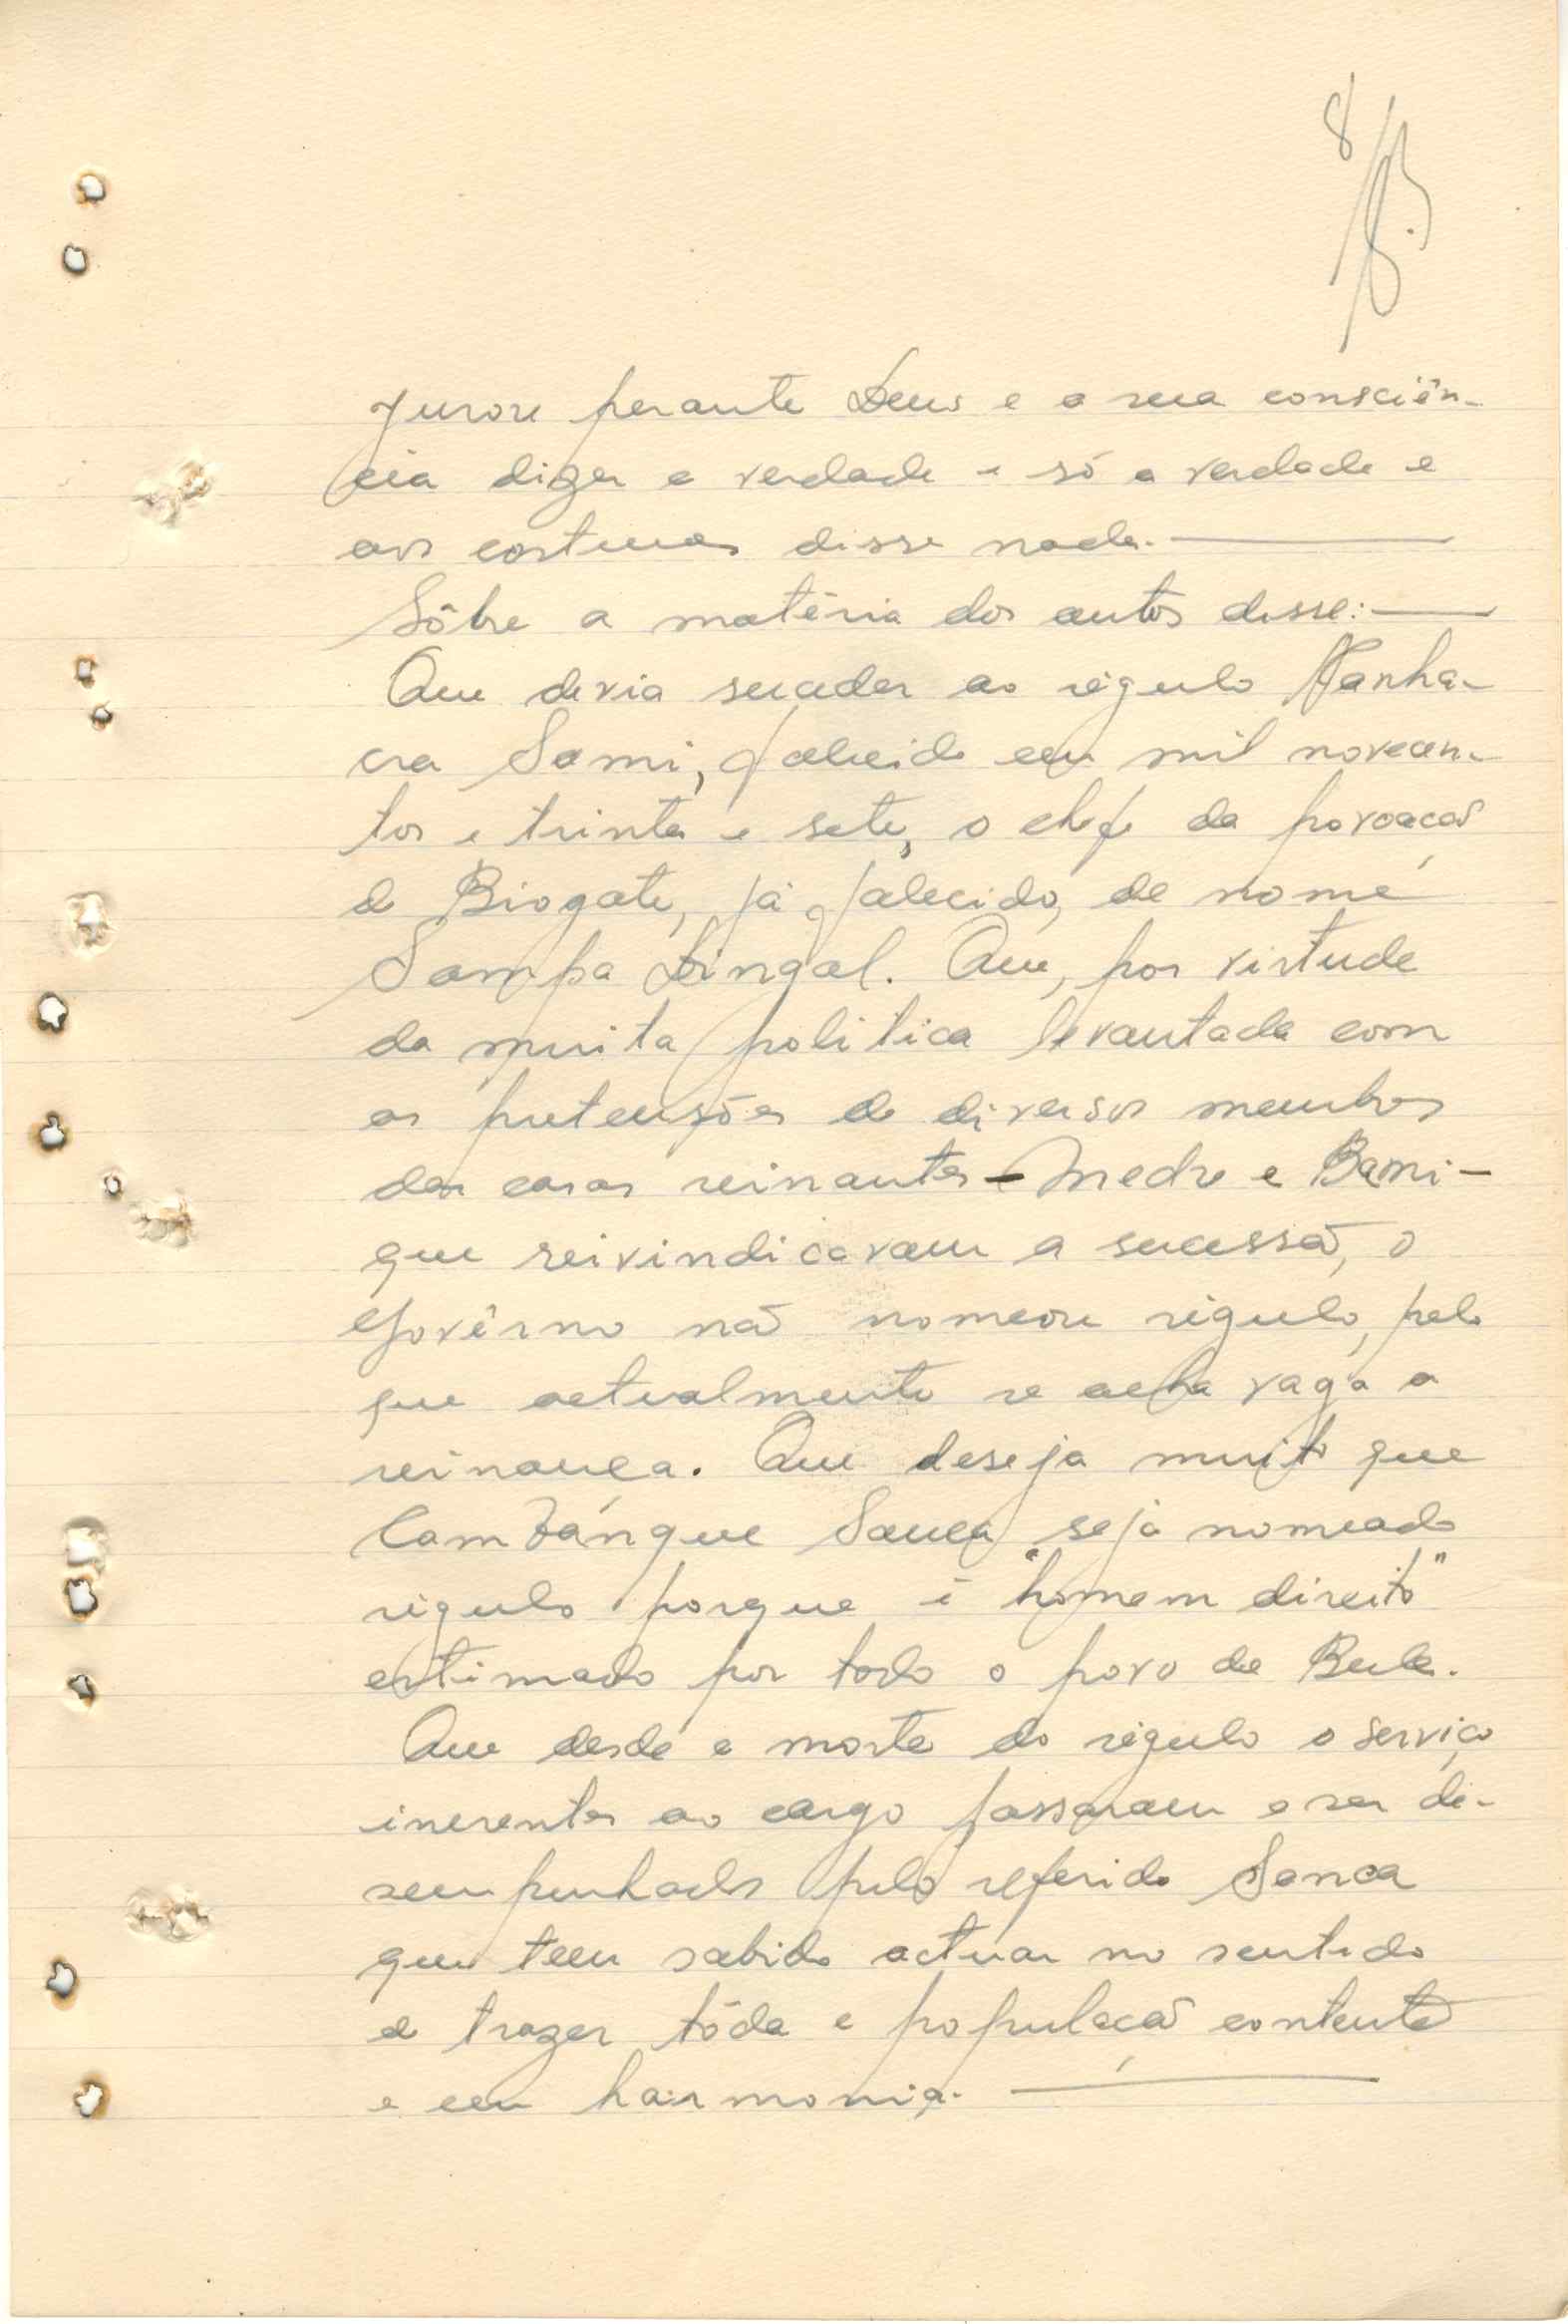 8
jurou perante Deus e a sua consciên-
cia dizer a verdade e só a verdade e
aos costumes disse nada.
Sôbre a matéria dos autos disse:
Que devia suceder ao régulo Nanha-
cra Sami, falecido em mil novecen-
tos e trinta e sete, o chefe da povoação
de Biogate, já falecido, de nome
Sampa Dingal. Que, por virtude
da muita politica levantada com
as pretensões de diversos membros
das casas reinantes - Medre e Bami -
que reivindicavam a sucessão, o
Govêrno não nomeou régulo, pelo
que actualmente se acha vaga a
reinança. Que deseja muito que
Cambángue Sanca seja nomeado
régulo porque é "homem direito"
estimado por todo o povo de Bula.
Que desde a morte do régulo o serviço
inerentes ao cargo passaram a ser de-
sempenhados pelo referido Sanca
que tem sabido actuar no sentido
de trazer tôda a população contente
e em harmonia.